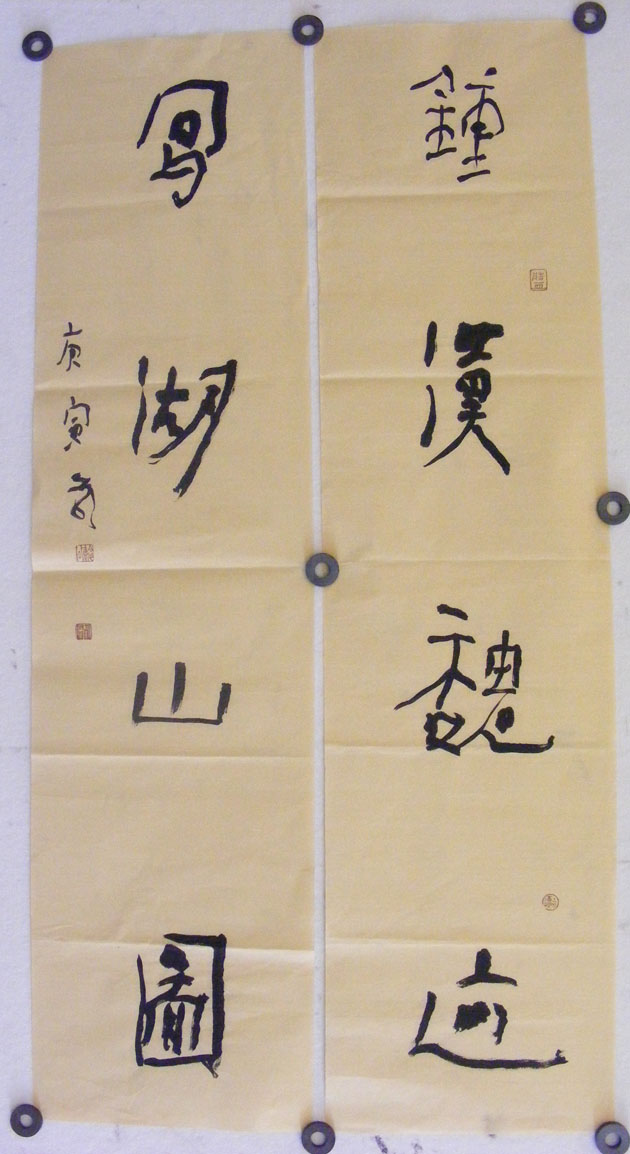 鍾漢魏迹
寫湖山圖
庚寅